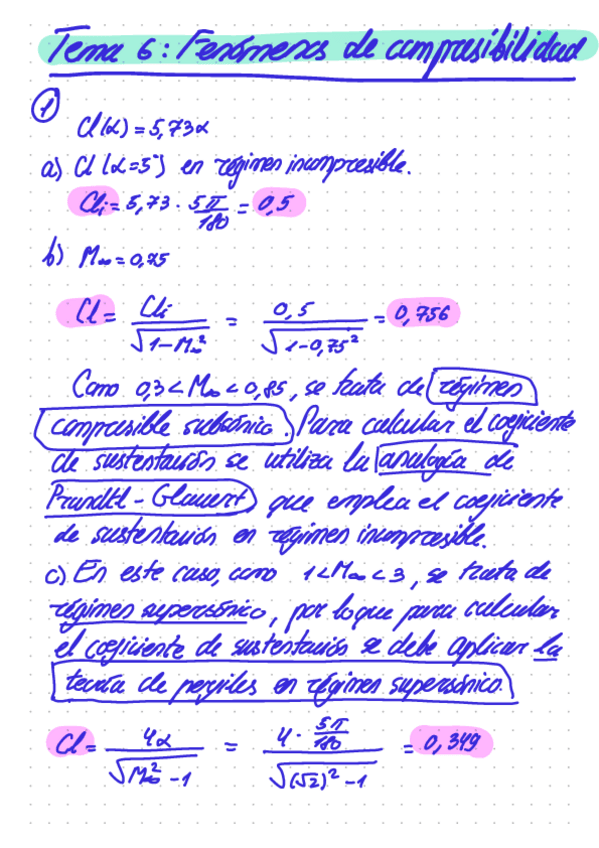 Tema 6: Fenómenos de compresibilidad
1
Cl(α) = 5,73α
a) Cl (α=5°) en régimen incompresible.
Cli = 5,73 · 5π/180 = 0,5
b) M∞ = 0,75
Cl = Cli/√(1-M∞²) = 0,5/√(1-0,75²) = 0,756
Como 0,3 < M∞ < 0,85, se trata de régimen
compresible subsónico. Para calcular el coeficiente
de sustentación se utiliza la analogía de
Prandtl-Glauert que emplea el coeficiente
de sustentación en régimen incompresible.
c) En este caso, como 1 < M∞ < 3, se trata de
régimen supersónico, por lo que para calcular
el coeficiente de sustentación se debe aplicar la
teoría de perfiles en régimen supersónico.
Cl = 4α/√(M∞²-1) = 4 · 5π/180/√((√2)²-1) = 0,349